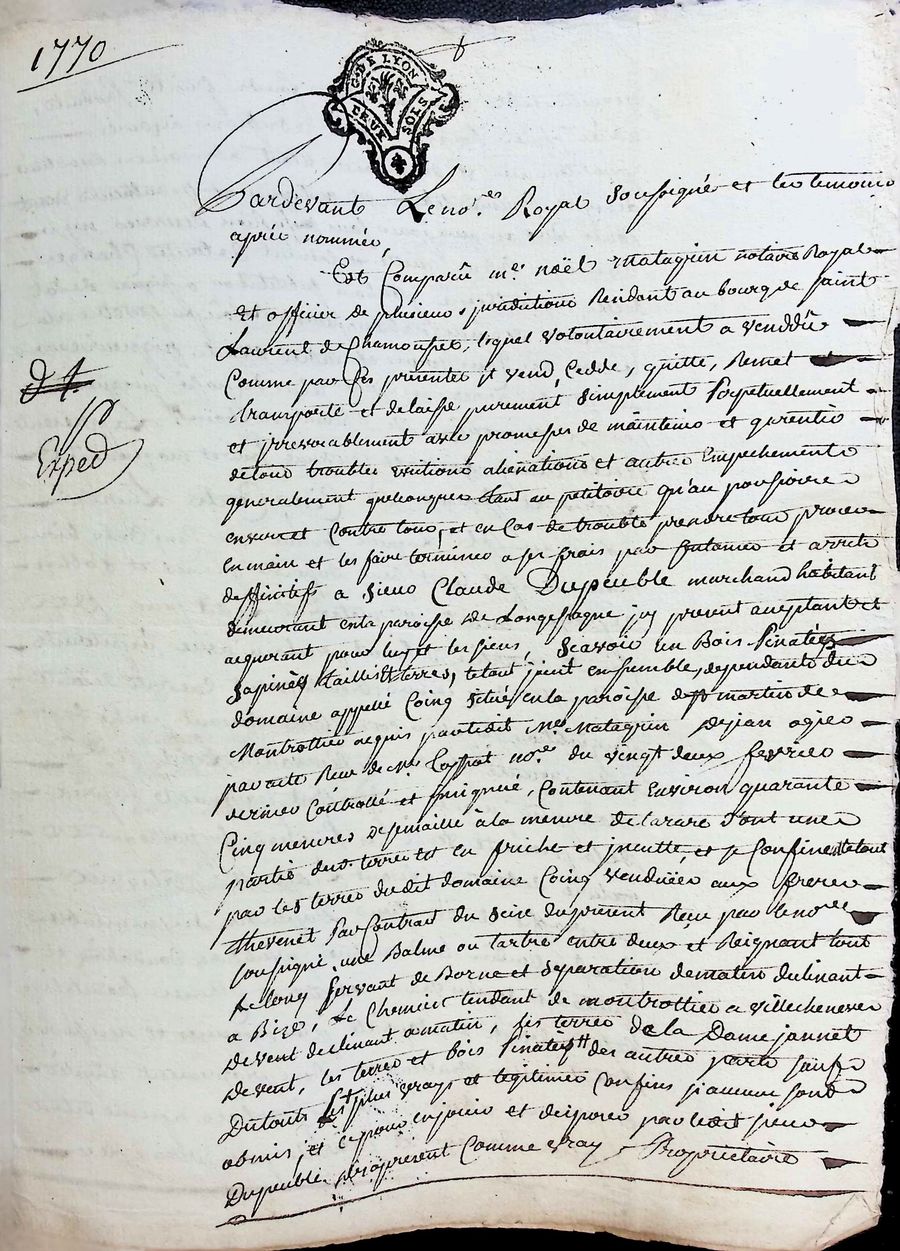 1770
G. DE LYON
DEUX SOLS
Pardevant Le no.re Royal soussigné et les temoins
après nommés,
Est Comparû me noël matagrin notaire Royal
et officier de plusieurs juridictions Residant au bourg de saint
Laurent de Chamousset, lequel volontairement a vendû
Comme par ses presentes il vend, Cedde, quitte, Remet
transporte et delaisse purement, simplement Perpetuellement
et irrevocablement avec promesses de maintenir et garentir
de tous troubles evictions alienations et autres Empechements
generalement quelconques tant au petitoire qu'au possessoire
envers et Contre tous, et en Cas de trouble prendre tous proces
en main et les faire terminer a ses frais par sentences et arrets
deffinitifs a sieur Claude Dupeuble marchand habitant
demeurant en la paroisse de Longessagne icy present acceptant et
aquerant pour luy et les siens, Scavoir un Bois Pinatées
sapinées taillis et terres, le tout joint ensemble, dependants du
domaine appellé Coinq situé en la paroisse de st martin de
Montrottier acquis par ledit Me Matagrin de jean ogier
par acte Reçu de Me no.re du vingt deux fevrier
dernier Controllé et insinué, Contenant Environ quarante
Cinq mesures de semaille à la mesure de larare dont une
partie des terres est en friche et inculte, et se Confinent le tout
par les terres dudit domaine Coinq vendües aux freres
thevenet Par Contrat du seize du present Reçu par le no.re
soussigné, une Balme ou tartre entre deux et Reignant tout
Le long servant de Borne et separation de matin declinant
a Bize, Le Chemin tendant de montrottier a villechenève
de vent declinant a matin, les terres de la Dame jannet
de vent, les terres et bois Pinatées des autres parts sauf
Du tout Les plus vrays et legitimes Confins si aucuns sont
obmis, et ce pour en jouir et disposer par ledit sieur
Dupeuble des apresent Comme vray Proprietaire
Exped